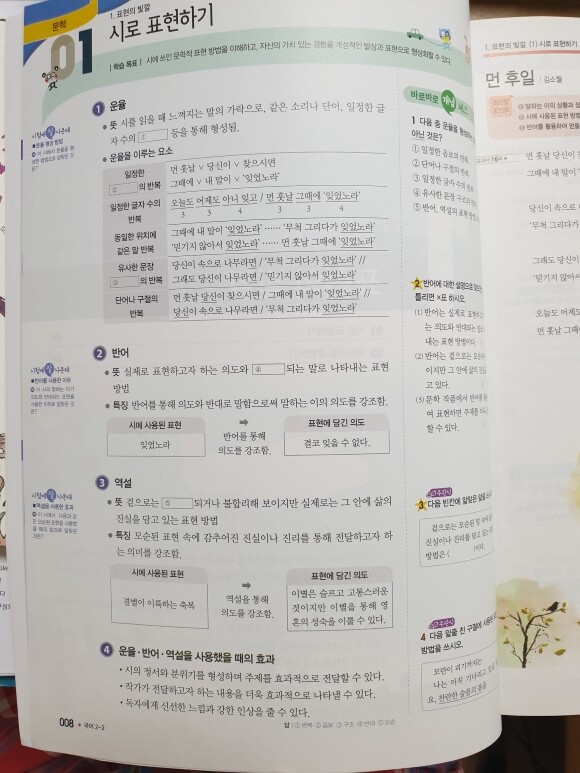 문학
01
1. 표현의 빛깔
시로 표현하기
| 학습 목표 | 시에 쓰인 문학적 표현 방법을 이해하고, 자신의 가치 있는 경험을 개성적인 발상과 표현으로 형상화할 수 있다.
시험에 잘 나온대
■ 운율 형성 방법
1 운율
• 뜻 시를 읽을 때 느껴지는 말의 가락으로, 같은 소리나 단어, 일정한 글
자 수의 ① 등을 통해 형성됨.
• 운율을 이루는 요소
일정한
② 의 반복
먼 훗날 ∨ 당신이 ∨ 찾으시면
그때에 ∨ 내 말이 ∨ ‘잊었노라’
일정한 글자 수의
반복
오늘도 어제도 아니 잊고 / 먼 훗날 그때에 ‘잊었노라’
3 3 4 3 3 4
동일한 위치에
같은 말 반복
그때에 내 말이 ‘잊었노라’ …… ‘무척 그리다가 잊었노라’
‘믿기지 않아서 잊었노라’ …… 먼 훗날 그때에 ‘잊었노라’
유사한 문장
③ 의 반복
당신이 속으로 나무라면 / ‘무척 그리다가 잊었노라’ //
그래도 당신이 나무라면 / ‘믿기지 않아서 잊었노라’
단어나 구절의
반복
먼 훗날 당신이 찾으시면 / 그때에 내 말이 ‘잊었노라’ //
당신이 속으로 나무라면 / ‘무척 그리다가 잊었노라’
시험에 잘 나온대
■ 반어를 사용한 이유
2 반어
• 뜻 실제로 표현하고자 하는 의도와 ④ 되는 말로 나타내는 표현
방법
• 특징 반어를 통해 의도와 반대로 말함으로써 말하는 이의 의도를 강조함.
시에 사용된 표현
잊었노라
➡
반어를 통해
의도를 강조함.
표현에 담긴 의도
결코 잊을 수 없다.
시험에 잘 나온대
■ 역설을 사용한 효과
3 역설
• 뜻 겉으로는 ⑤ 되거나 불합리해 보이지만 실제로는 그 안에 삶의
진실을 담고 있는 표현 방법
• 특징 모순된 표현 속에 감추어진 진실이나 진리를 통해 전달하고자 하
는 의미를 강조함.
시에 사용된 표현
결별이 이룩하는 축복
➡
역설을 통해
의도를 강조함.
표현에 담긴 의도
이별은 슬프고 고통스러운
것이지만 이별을 통해 영
혼의 성숙을 이룰 수 있다.
4 운율·반어·역설을 사용했을 때의 효과
• 시의 정서와 분위기를 형성하며 주제를 효과적으로 전달할 수 있다.
• 작가가 전달하고자 하는 내용을 더욱 효과적으로 나타낼 수 있다.
• 독자에게 신선한 느낌과 강한 인상을 줄 수 있다.
008 • 국어 2-2
답 | ① 반복 ② 음보 ③ 구조 ④ 반대 ⑤ 모순
바로바로 개념
1 다음 중 운율을 형성하
아닌 것은?
① 일정한 음보의 반복
② 단어나 구절의 반복
③ 일정한 글자 수의 반복
④ 유사한 문장 구조의
⑤ 반어, 역설의 표현
2 반어에 대한 설명으로
틀리면 ×표 하시오.
(1) 반어는 실제로 표현
는 의도와 반대되는
내는 표현 방법이다.
(2) 반어는 겉으로는
이지만 그 안에 삶의
고 있다.
(3) 문학 작품에서 반어를
여 표현하면 주제를
할 수 있다.
3 다음 빈칸에 알맞은 말을
겉으로는 모순된 말 속에
진실이나 진리를 담고 있는
방법은 ( )이다.
4 다음 밑줄 친 구절에 사용된
방법을 쓰시오.
모란이 피기까지는
나는 아직 기다리고 있을
요, 찬란한 슬픔의 봄을
1. 표현의 빛깔 (1) 시로 표현하기
먼 후일 | 김소월
교과서 16쪽
먼 훗날 당신이
그때에 내 말이
당신이 속으로
‘무척 그리다가
그래도 당신이
‘믿기지 않아서
오늘도 어제도
먼 훗날